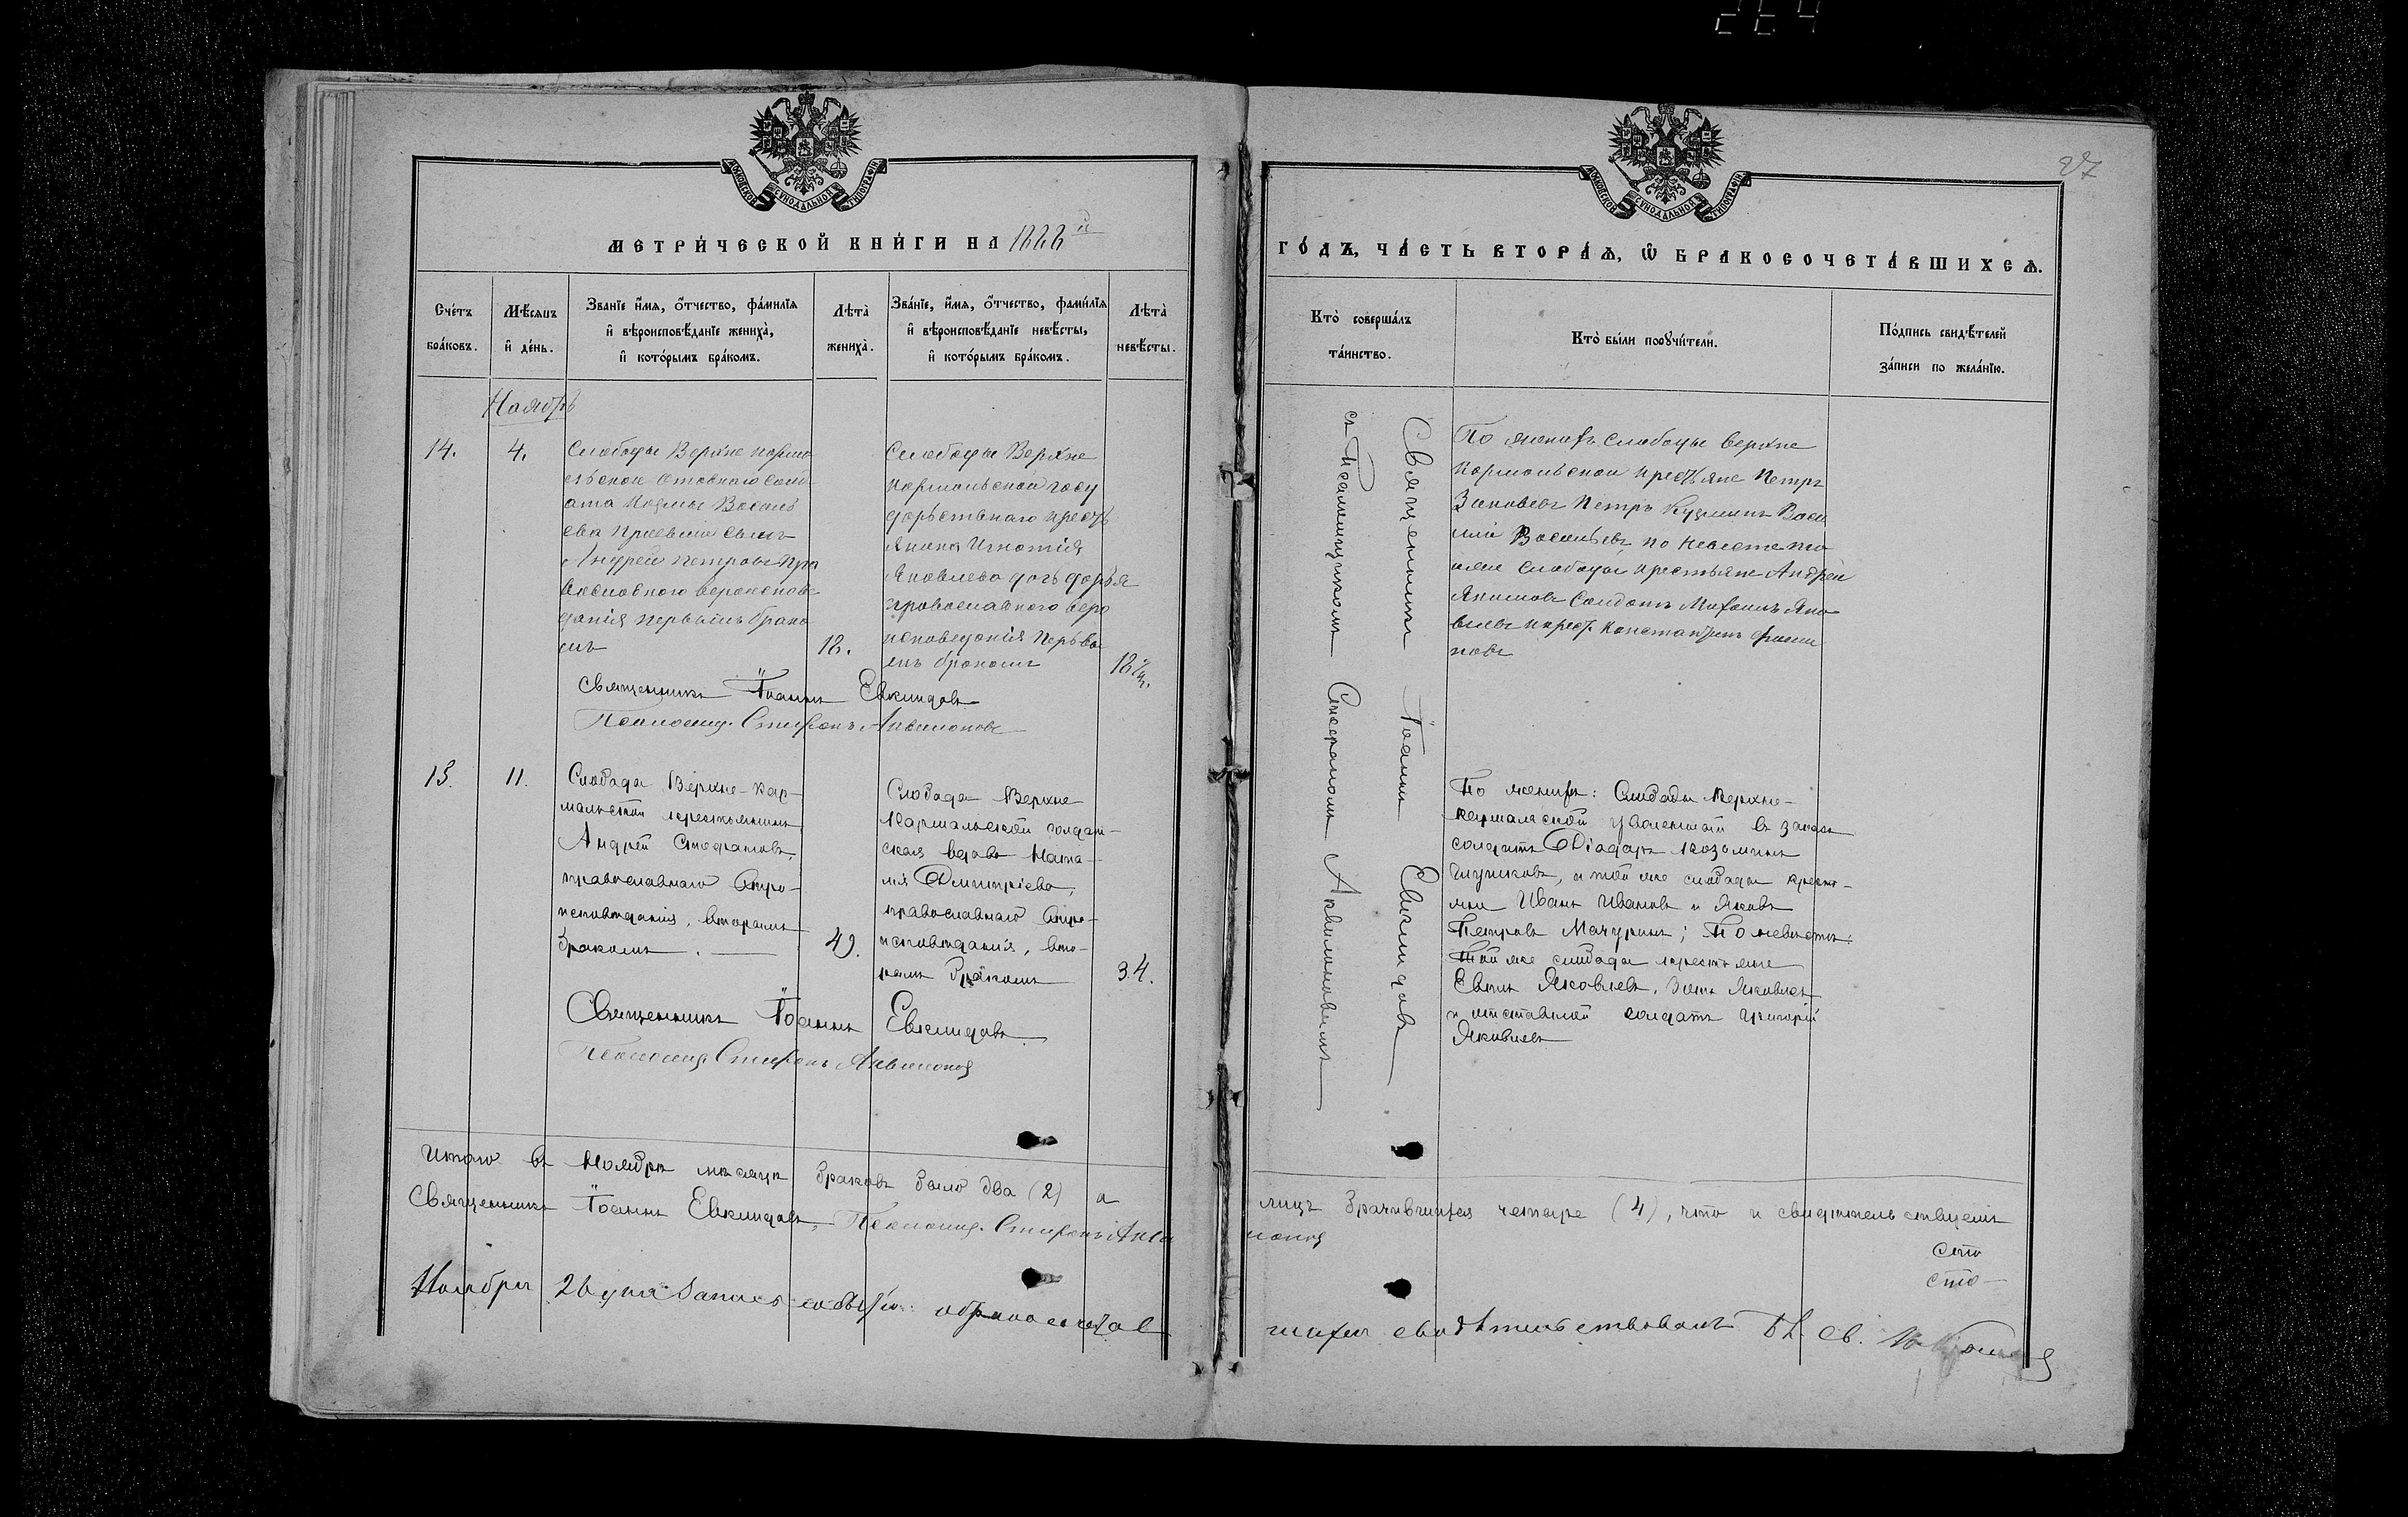 264
27
МОСКОВСКОЙ СѴНОДАЛЬНОЙ ТИПОГРАФІИ
МЕТРИ́ЧЕСКОЙ КНИ́ГИ НА 1888 й
Сче́тъ бра́ковъ.
Мѣ́сяцъ и҆ де́нь.
Зва́нїе и҆́мя, ѻ҆́тчество, фами́лїя
и҆ вѣроисповѣ́данїе жениха̀,
и҆ кото́рымъ бра́комъ.
Лѣта̀ жениха̀.
Зва́нїе, и҆́мя, ѻ҆́тчество, фами́лїя
и҆ вѣроисповѣ́данїе невѣ́сты,
и҆ кото́рымъ бра́комъ.
Лѣта̀ невѣ́сты.
Ноябрь
14.
4.
Слободы Верхне карма
льской отставнаго солд
ата Козмы Василь
ева приемный сынъ
Андрей Петровъ пра
вославного вероиспове
дания первымъ брако
мъ
18.
Слободы Верхне
кармальской госу
дарьственаго кресть
янина Игнатія
Яковлева дочь Дарья
православного веро
исповеданія первы
мъ бракомъ
18
Священникъ Іоаннъ Евклидовъ
Псаломщ. Стефанъ Анвилоновъ
15.
11.
Слободы Верхне-Кар-
мальской крестьянинъ
Андрей Стефановъ,
православнаго вѣро-
исповѣданія, вторымъ
бракомъ.
49.
Слободы Верхне
Кармальской солдат-
ская вдова Ната-
лія Димитріева,
православнаго вѣро-
исповѣданія, вто-
рымъ бракомъ
34.
Священникъ Іоаннъ Евклидовъ.
Псаломщ. Стефанъ Анвилонов
Итого въ Ноябрѣ мѣсяцѣ браковъ было два (2) а
Священникъ Іоаннъ Евклидовъ, Псаломщ. Стефанъ Анви
Ноября 26 дня запись событій о бракосочетав
МОСКОВСКОЙ СѴНОДАЛЬНОЙ ТИПОГРАФІИ
ГО́ДЪ, ЧА́СТЬ ВТОРА́Ѧ, Ѽ БРАКОСОЧЕТА́ВШИХСѦ.
Кто̀ соверша́лъ
та́инство.
Кто̀ бы́ли порꙋчи́тели.
По́дпись свидѣ́телей
за́писи по жела́нїю.
Священникъ Іоаннъ Евклидовъ
съ Псаломщикомъ Стефаномъ Анвилоновымъ
По жениху слободы Верхне
кармальской крестьяне Петръ
Зиновьевъ Петръ Кузминъ Васи
лий Васильевъ по невесте то
иже слободы крестьяне Андрей
Якимовъ Солдатъ Михаилъ Яко
влевъ и крест. Константинъ Филип
повъ
По женихѣ: Слободы Верхне-
кармальской уволенный въ запасъ
солдатъ Ѳіодоръ Козьминъ
Глушковъ, и той же слободы кресть-
яне Иванъ Ивановъ и Яковъ
Петровъ Мачуринъ; По невѣстѣ:
Той же слободы крестьяне
Евтих Яковлевъ, Яковлевъ
и отставной солдатъ Григорій
Яковлевъ
лицъ брачившихся четыре (4), что и свидѣтельствуемъ
лонов
шихся свидѣтельствовалъ Бл. Св.